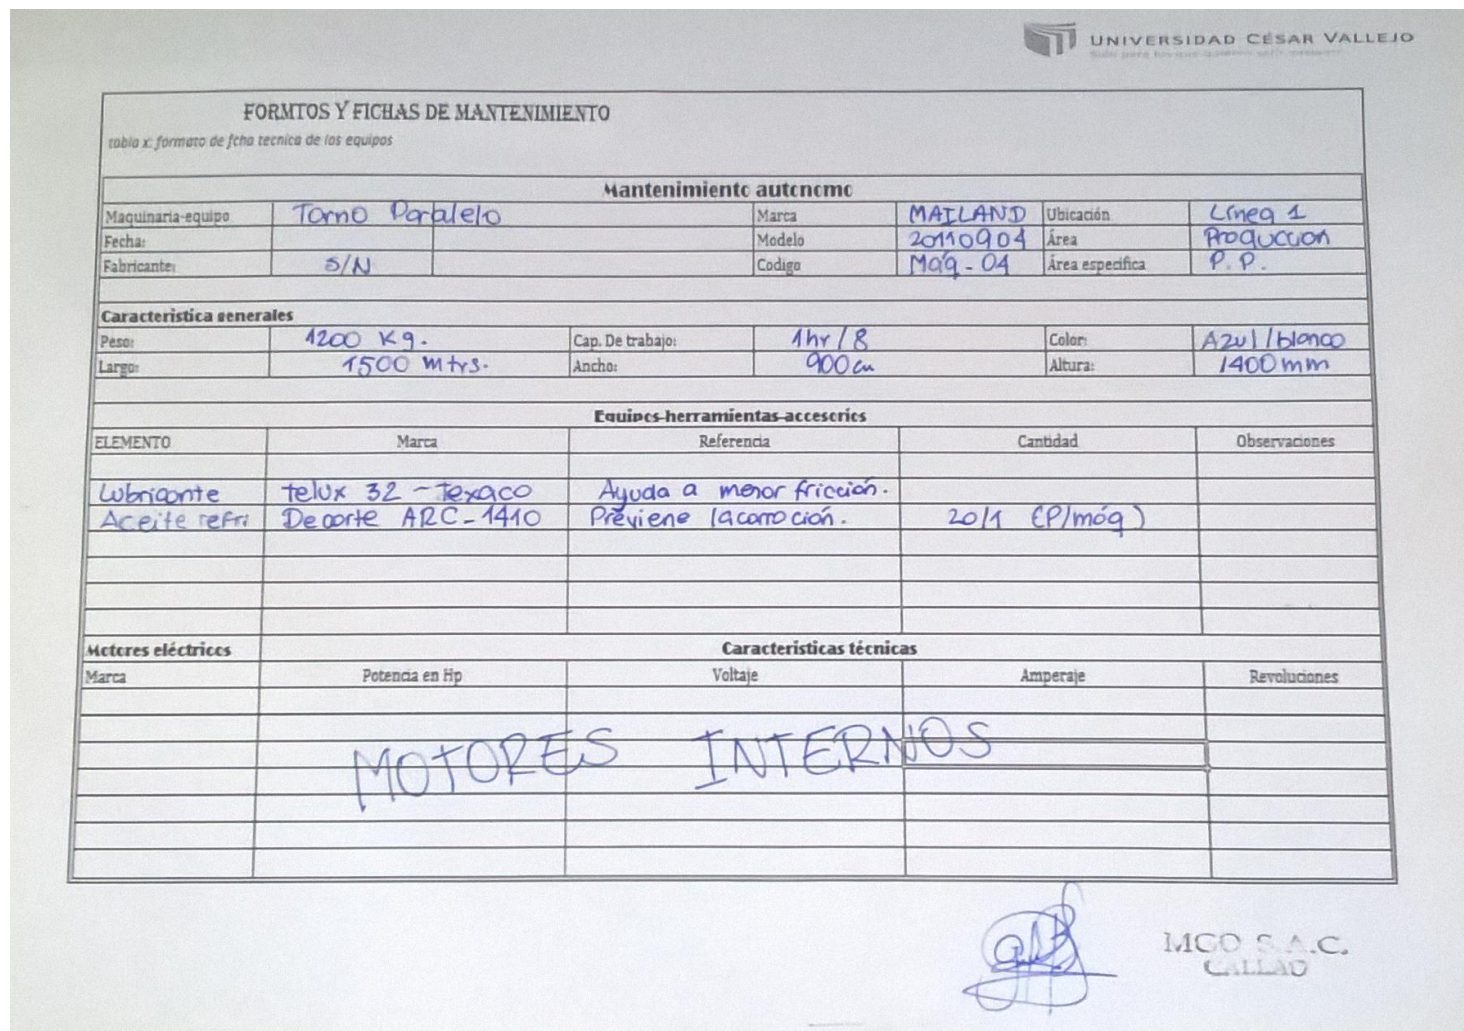 UNIVERSIDAD CÉSAR VALLEJO
FORMTOS Y FICHAS DE MANTENIMIENTO
tabla x: formato de fcha tecnica de los equipos
Mantenimiento autonomo
Maquinaria-equipo Torno Paralelo Marca MAILAND Ubicación Línea 1
Fecha: Modelo 20110904 Área Producción
Fabricante: S/N Codigo Maq-04 Área especifica P.P.
Caracteristica generales
Peso: 1200 Kg. Cap. De trabajo: 1hr/8 Color: Azul/blanco
Largo: 1500 mtrs. Ancho: 900 cm Altura: 1400 mm
Equipos-herramientas-accesorios
ELEMENTO Marca Referencia Cantidad Observaciones
Lubricante telux 32 - Texaco Ayuda a menor fricción.
Aceite refri De corte ARC-1410 Previene la corroción. 20/1 (P/máq)
Motores eléctricos Caracteristicas técnicas
Marca Potencia en Hp Voltaje Amperaje Revoluciones
MOTORES INTERNOS
MCO S.A.C.
CALLAO